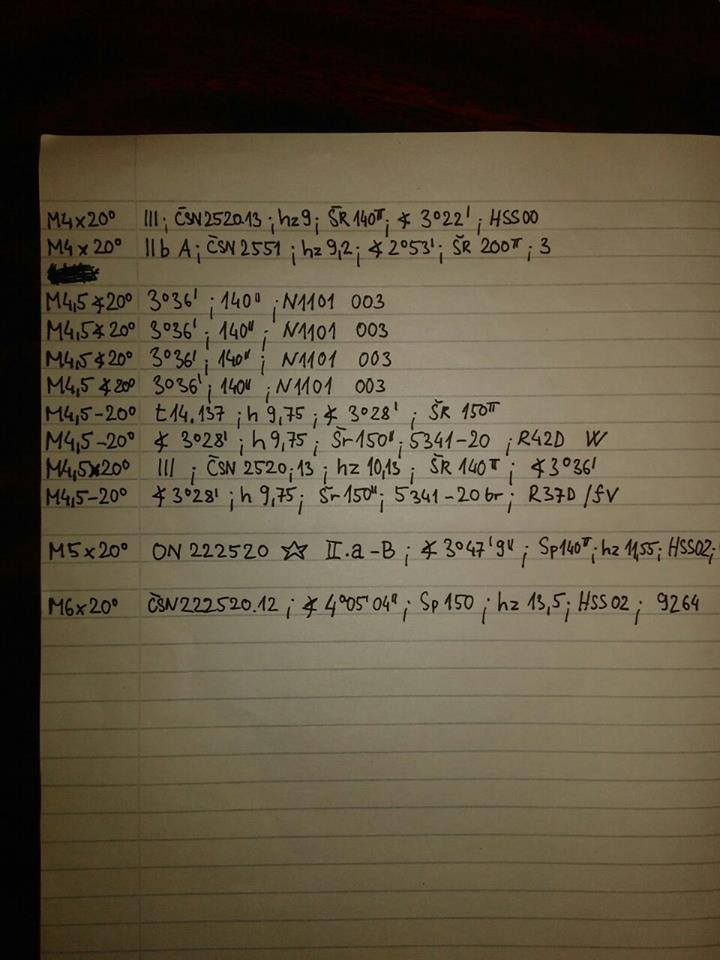 M4×20° III; ČSN 2520.13; hz9; ŠR 140"; ∢ 3°22'; HSS00
M4×20° IIb A; ČSN 2551; hz 9,2; ∢ 2°53'; ŠR 200"; 3
M4,5∢20° 3°36'; 140"; N1101 003
M4,5∢20° 3°36'; 140"; N1101 003
M4,5∢20° 3°36'; 140"; N1101 003
M4,5∢20° 3°36'; 140"; N1101 003
M4,5-20° t14.137; h 9,75; ∢ 3°28'; ŠR 150"
M4,5-20° ∢ 3°28'; h 9,75; Šr 150"; 5341-20; R42D W
M4,5×20° III; ČSN 2520;13; hz 10,13; ŠR 140"; ∢3°36'
M4,5-20° ∢3°28'; h 9,75; Šr 150"; 5341-20 br; R37D/fV
M5×20° ON 222520 ☆ II.a-B; ∢ 3°47'9"; Sp140"; hz 11,55; HSS02;
M6×20° ČSN 222520.12; ∢ 4°05'04"; Sp 150; hz 13,5; HSS 02; 9264